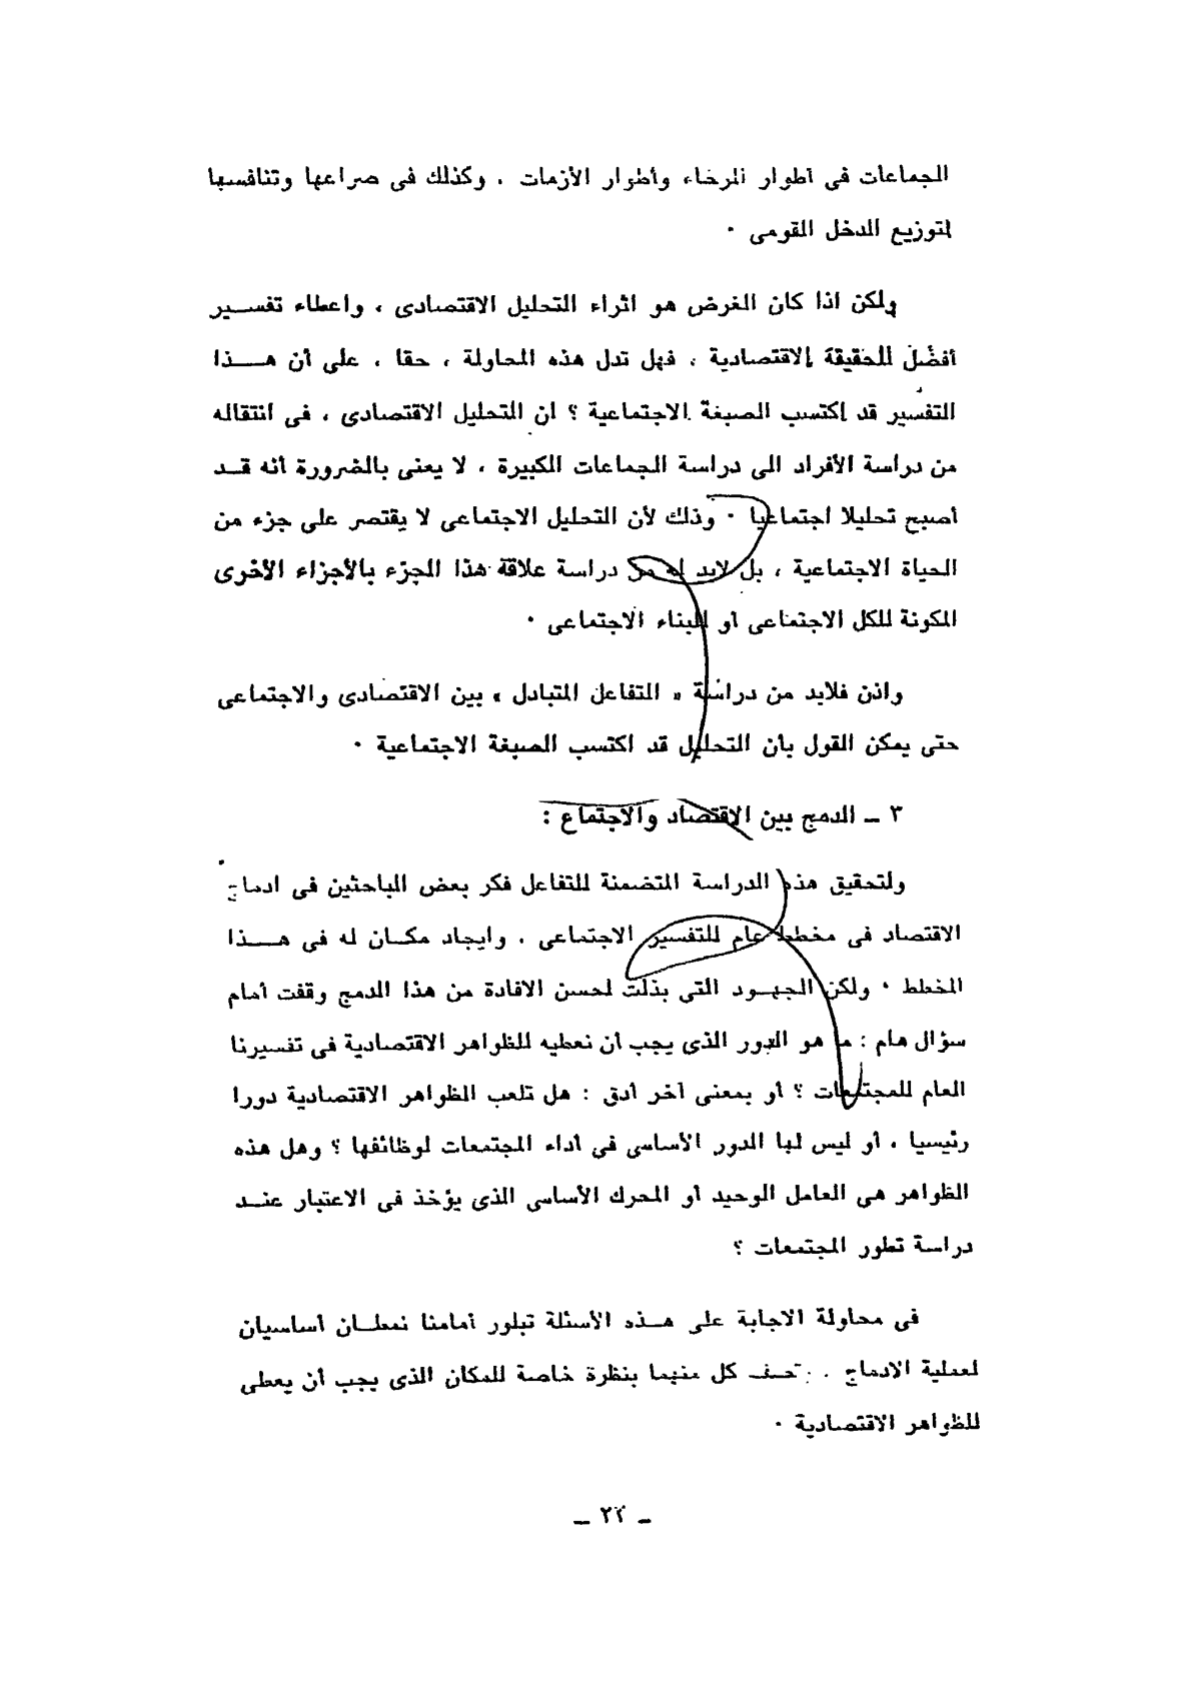 الجماعات فى أطوار الرخاء وأطوار الأزمات ، وكذلك فى صراعها وتنافسها
لتوزيع الدخل القومى ٠
ولكن اذا كان الغرض هو اثراء التحليل الاقتصادى ، واعطاء تفســير
أفضل للحقيقة الاقتصادية ، فهل تدل هذه المحاولة ، حقا ، على أن هــذا
التفسير قد اكتسب الصبغة الاجتماعية ؟ ان التحليل الاقتصادى ، فى انتقاله
من دراسة الأفراد الى دراسة الجماعات الكبيرة ، لا يعنى بالضرورة أنه قــد
أصبح تحليلا اجتماعيا ٠ وذلك لأن التحليل الاجتماعى لا يقتصر على جزء من
الحياة الاجتماعية ، بل لابد له من دراسة علاقة هذا الجزء بالأجزاء الأخرى
المكونة للكل الاجتماعى أو للبناء الاجتماعى ٠
واذن فلابد من دراسة « التفاعل المتبادل » بين الاقتصادى والاجتماعى
حتى يمكن القول بأن التحليل قد اكتسب الصبغة الاجتماعية ٠
٣ ــ الدمج بين الاقتصاد والاجتماع :
ولتحقيق هذه الدراسة المتضمنة للتفاعل فكر بعض الباحثين فى ادماج
الاقتصاد فى مخطط عام للتفسير الاجتماعى ، وايجاد مكــان له فى هــذا
المخطط ٠ ولكن الجهــود التى بذلت لحسن الافادة من هذا الدمج وقفت أمام
سؤال هام : ما هو الدور الذى يجب أن نعطيه للظواهر الاقتصادية فى تفسيرنا
العام للمجتمعات ؟ أو بمعنى آخر أدق : هل تلعب الظواهر الاقتصادية دورا
رئيسيا ، أو ليس لها الدور الأساسى فى أداء المجتمعات لوظائفها ؟ وهل هذه
الظواهر هى العامل الوحيد أو المحرك الأساسى الذى يؤخذ فى الاعتبار عنــد
دراسة تطور المجتمعات ؟
فى محاولة الاجابة على هــذه الأسئلة تبلور أمامنا نمطــان أساسيان
لعملية الادماج ، كل منهما بنظرة خاصة للمكان الذى يجب أن يعطى
للظواهر الاقتصادية ٠
ــ ٢٢ ــ